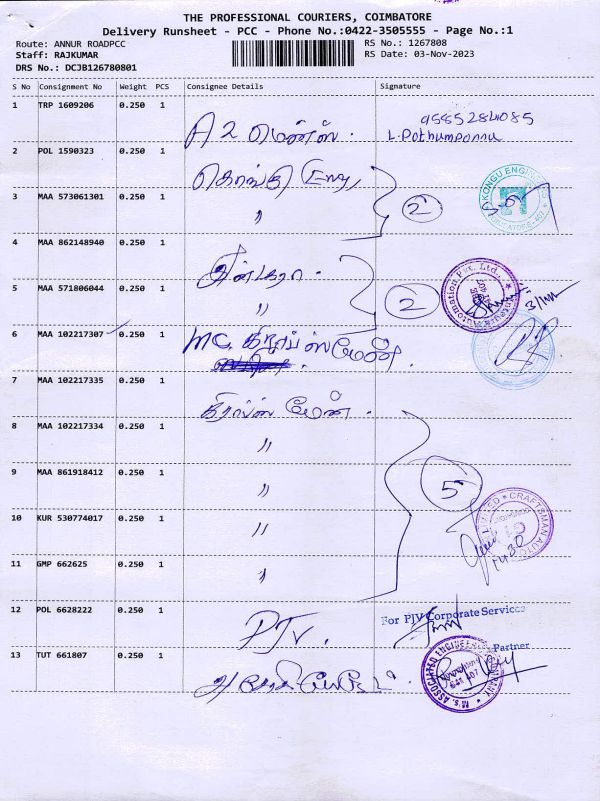 THE PROFESSIONAL COURIERS, COIMBATORE
Delivery Runsheet - PCC - Phone No.:0422-3505555 - Page No.:1
Route: ANNUR ROADPCC
RS No.: 1267808
Staff: RAJKUMAR
RS Date: 03-Nov-2023
DRS No.: DCJB126780801
S No Consignment No Weight PCS Consignee Details Signature
1 TRP 1609206 0.250 1 A2 மென்ஸ். 9585284085
L.Pothumponnu
2 POL 1590323 0.250 1 கொங்கு Eng,
3 MAA 573061301 0.250 1 " 2
4 MAA 862148940 0.250 1
5 MAA 571806044 0.250 1 " 2
6 MAA 102217307 0.250 1 MC.
7 MAA 102217335 0.250 1
8 MAA 102217334 0.250 1 "
9 MAA 861918412 0.250 1 " 5
10 KUR 530774017 0.250 1 "
11 GMP 662625 0.250 1 "
12 POL 6628222 0.250 1 PJV. For PJV Corporate Services
Partner
13 TUT 661807 0.250 1